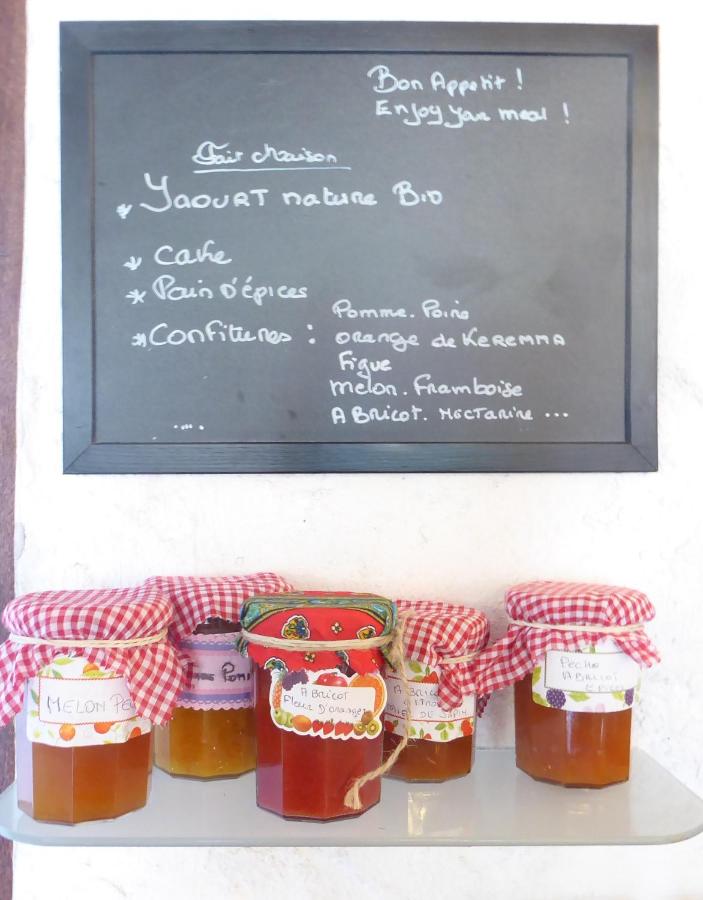 Bon Appetit !
Enjoy your meal !
Fait Maison
* YAOURT nature Bio
* Cake
* Pain D'épices
* Confitures :
Pomme. Poire
orange de KEREMMA
Figue
melon. Framboise
ABricot. Nectarine ...
.....
MELON PÊ
POM
ABRICOT
Fleur D'oranger
ABRICOT
DE SAPIN
Pêche
ABRICOT